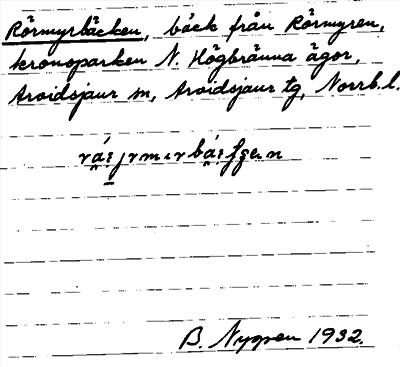 Rörmyrbäcken, bäck från Rörmyren,
kronoparken N. Högbränna ägor,
Arvidsjaur sn, Arvidsjaur tg, Norrb. l.
B. Nygren 1932.